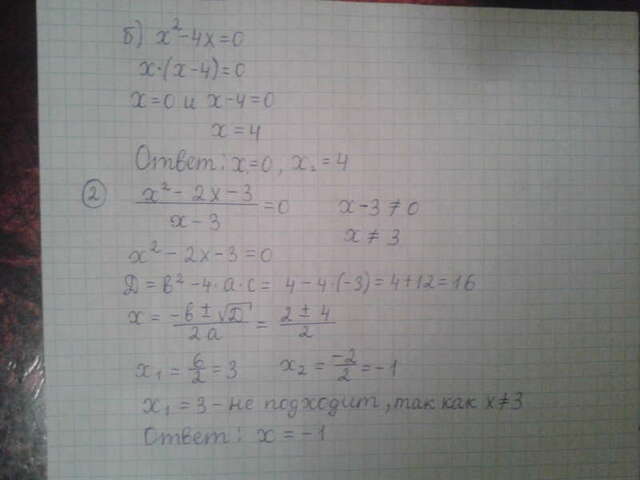 б) x²-4x=0
x·(x-4)=0
x=0 и x-4=0
x=4
Ответ: x=0, x₂=4
② (x²-2x-3)/(x-3)=0 x-3≠0
x≠3
x²-2x-3=0
Д=в²-4·a·c= 4-4·(-3)=4+12=16
x=(-в±√Д)/(2a)=(2±4)/2
x₁=6/2=3 x₂=-2/2=-1
x₁=3-не подходит, так как x≠3
Ответ: x=-1